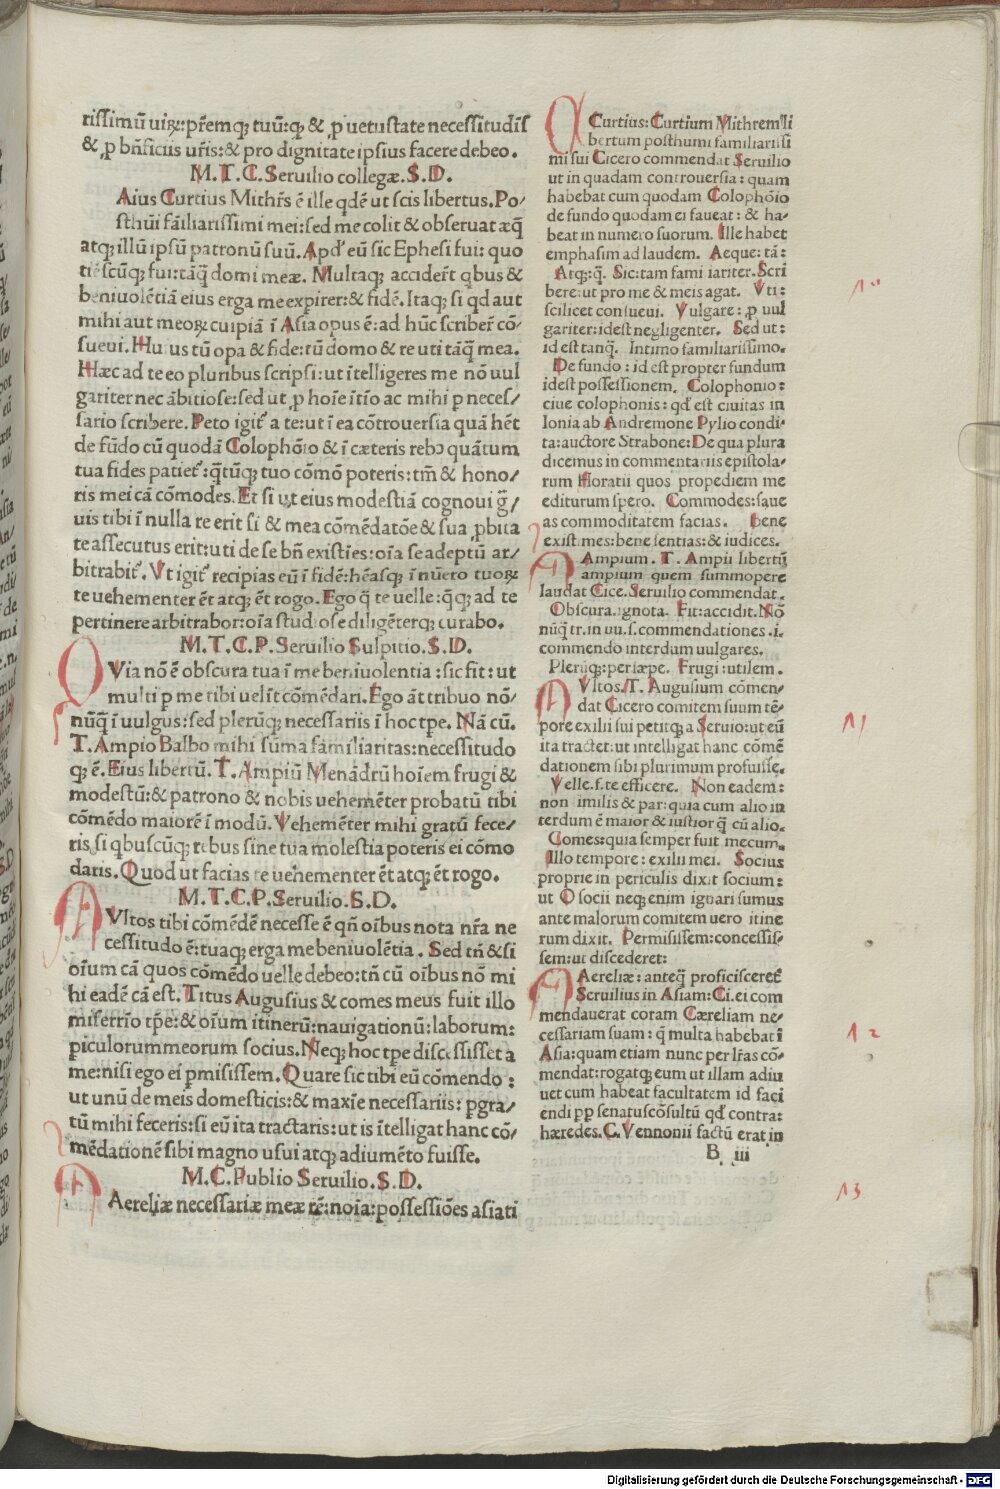 rissimū uiꝝ: pr̄emqȝ tuū:qȝ & ꝓ uetustate necessitudīs
& ꝓ bn̄ficiis ur̄is:& pro dignitate ipsius facere debeo.
M.T.C.Seruilio collegæ.S.D.
Aius Curtius Mithr̄s ē ille qdē ut scis libertus.Po/
sthūi fāiliarissimi mei:sed me colit & obseruat æq̄
atqȝ illū ipsū patronū suū.Apd' eū sic Ephesi fui: quo
tiēscūqȝ fui:tāq̄ domi meæ. Multaqȝ accider̄t qbus &
beniuolētiā eius erga me expirer:& fidē.Itaqȝ si qd aut
mihi aut meoꝝ cuipiā ī Asia opus ē:ad hūc scriber̄ cō/
sueui.Huius tū opa & fide:tū domo & re uti tāq̄ mea.
Hæc ad te eo pluribus scripsi:ut ītelligeres me nō uul
gariter nec ābitiose:sed ut ꝓ hoīe ītīo ac mihi p neces/
sario scribere.Peto igit' a te:ut ī ea cōtrouersia quā hēt
de fūdo cū quodā Colophōio & ī cæteris rebꝰ quātum
tua fides patiet':q̄tūqȝ tuo cōmō poteris:tm̄ & hono/
ris mei cā cōmodes.Et si ut eius modestiā cognoui g̃/
uis tibi ī nulla re erit si & mea cōmēdatōe & sua ꝓbita
te assecutus erit:uti de se bn̄ existies:oīa se adeptū ar/
bitrabit'.Vt igit' recipias eū ī fidē:hēasqȝ ī nūero tuoꝝ
te uehementer ēt atqȝ ēt rogo.Ego q̄ te uelle:q̄qȝ ad te
pertinere arbitrabor:oīa studiose diligēterqȝ curabo.
M.T.C.P.Seruilio Sulpitio.S.D.
QVia nō ē obscura tua ī me beniuolentia:sic fit:ut
multi p me tibi uelīt cōmēdari.Ego āt tribuo nō/
nūq̄ ī uulgus:sed plerūqȝ necessariis ī hoc tpe. Nā cū.
T.Ampio Balbo mihi sūma familiaritas:necessitudo
qȝ ē.Eius libertū.T.Ampiū Menādrū hoīem frugi &
modestū:& patrono & nobis uehemēter probatū tibi
cōmēdo maiorē ī modū.Vehemēter mihi gratū fece/
ris si qbuscūqȝ rebus sine tua molestia poteris ei cōmo
daris.Quod ut facias te uehementer ēt atqȝ ēt rogo.
M.T.C.P.Seruilio.S.D.
MVltos tibi cōmēdē necesse ē qn̄ oībus nota nr̄a ne
cessitudo ē:tuaqȝ erga me beniuolētia. Sed tn̄ & si
oīum cā quos cōmēdo uelle debeo:tn̄ cū oībus nō mi
hi eadē cā est.Titus Augusius & comes meus fuit illo
miserrīo tp̄e:& oīum itinerū:nauigationū:laborum:
piculorum meorum socius.Neqȝ hoc tpe discessisset a
me:nisi ego ei pmisissem.Quare sic tibi eū cōmendo:
ut unū de meis domesticis:& maxīe necessariis: pgra/
tū mihi feceris:si eū ita tractaris:ut is ītelligat hanc cō/
mēdationē sibi magno usui atqȝ adiumēto fuisse.
M.C.Publio Seruilio.S.D.
Aereliæ necessariæ meæ rē:noīa:possessiōes asiati
CCurtius:Curtium Mithrem li
bertum posthumi familiarissi
mi sui Cicero commendat Seruilio
ut in quadam controuersia: quam
habebat cum quodam Colophōio
de fundo quodam ei faueat: & ha/
beat in numero suorum. Ille habet
emphasim ad laudem. Aeque: tā:
Atqȝ:q̄. Sic:tam familiariter.Scri
bere:ut pro me & meis agat. Vti:
scilicet consueui. Vulgare: ꝓ uul
gariter:idest negligenter. Sed ut:
id est tanq̄. Intimo familiarissimo.
De fundo: id est propter fundum
idest possessionem. Colophonio:
ciue colophonis: qd' est ciuitas in
Ionia ab Andremone Pylio condi/
ta:auctore Strabone:De qua plura
dicemus in commentariis epistola/
rum Horatii quos propediem me
editurum spero. Commodes:faue
as commoditatem facias. bene
existimes:bene sentias:& iudices.
Ampium. T. Ampii libertū
ampium quem summopere
laudat Cice.Seruilio commendat.
Obscura.ignota. Fit:accidit.Nō
nūq̄ tr.in uu.s.commendationes.i.
commendo interdum uulgares.
Plerūqȝ:persæpe. Frugi:utilem.
MVltos.T.Augusium cōmen/
dat Cicero comitem suum tē/
pore exilii sui petitqȝ a Seruio:ut eū
ita tractet:ut intelligat hanc cōmē
dationem sibi plurimum profuisse.
Velle.s.te efficere. Non eadem:
non similis & par:quia cum alio in
terdum ē maior & iustior q̄ cū alio.
Comes:quia semper fuit mecum.
Illo tempore: exilii mei. Socius
proprie in periculis dixit socium:
ut O socii neqȝ enim ignari sumus
ante malorum comitem uero itine
rum dixit. Permisissem:concessis/
sem:ut discederet:
Aereliæ: anteq̄ proficisceret̄
Seruilius in Asiam:Ci.ei com
mendauerat coram Cæreliam ne/
cessariam suam: q̄ multa habebat ī
Asia:quam etiam nunc per lr̄as cō/
mendat:rogatqȝ eum ut illam adiu
uet cum habeat facultatem id faci
endi pp senatuscōsultū qd' contra:
hæredes.C.Vennonii factū erat in
B iii
10
11
12
13
Digitalisierung gefördert durch die Deutsche Forschungsgemeinschaft - DFG